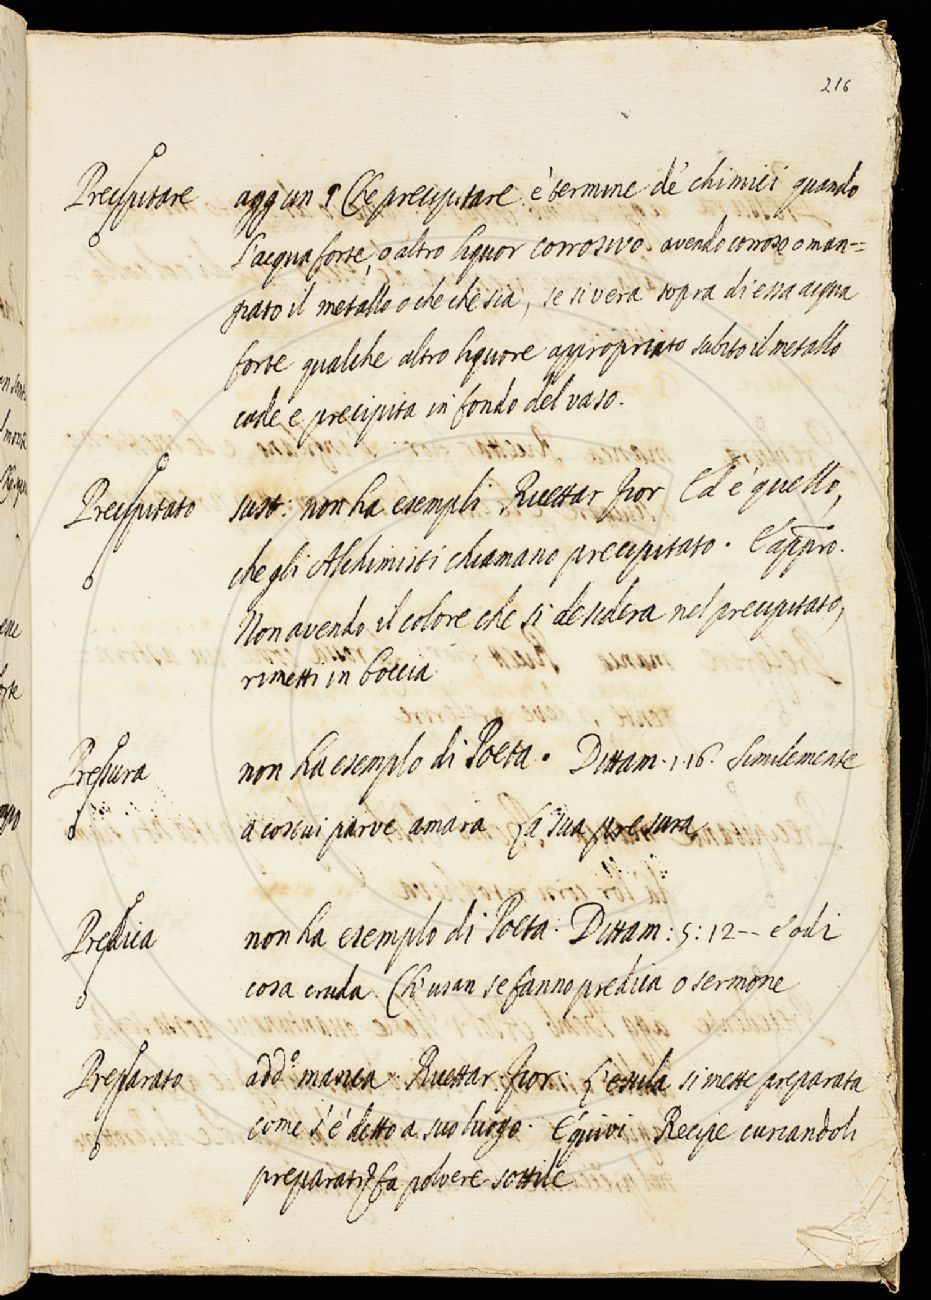 216
Precipitare aggiun § Che precipitare è termine de' chimici quando
l'acqua forte, o altro liquor corrosivo. avendo corroso o man=
giato il metallo o che che sia, se si versa sopra di essa acqua
forte qualche altro liquore appropriato subito il metallo
cade e precipita in fondo del vaso.
Precipitato sust: non ha esempli Ricettar fior Ed è quello,
che gli Alchimisti chiamano precipitato. E appro.
Non avendo il colore che si desidera nel precipitato,
rimetti in boccia
Pressura non ha esemplo di Poeta. Dittam. 1.16. Similemente
a costui parve amara La sua pressura
Predica non ha esemplo di Poeta. Dittam: 5:12-- e odi
cosa cruda Ch'usan se fanno predica o sermone
Preparato add.º manca Ricettar fior. L'esula si mette preparata
come s'è detto a suo luogo. E quivi Recipe curiandoli
preparati, fa polvere sottile